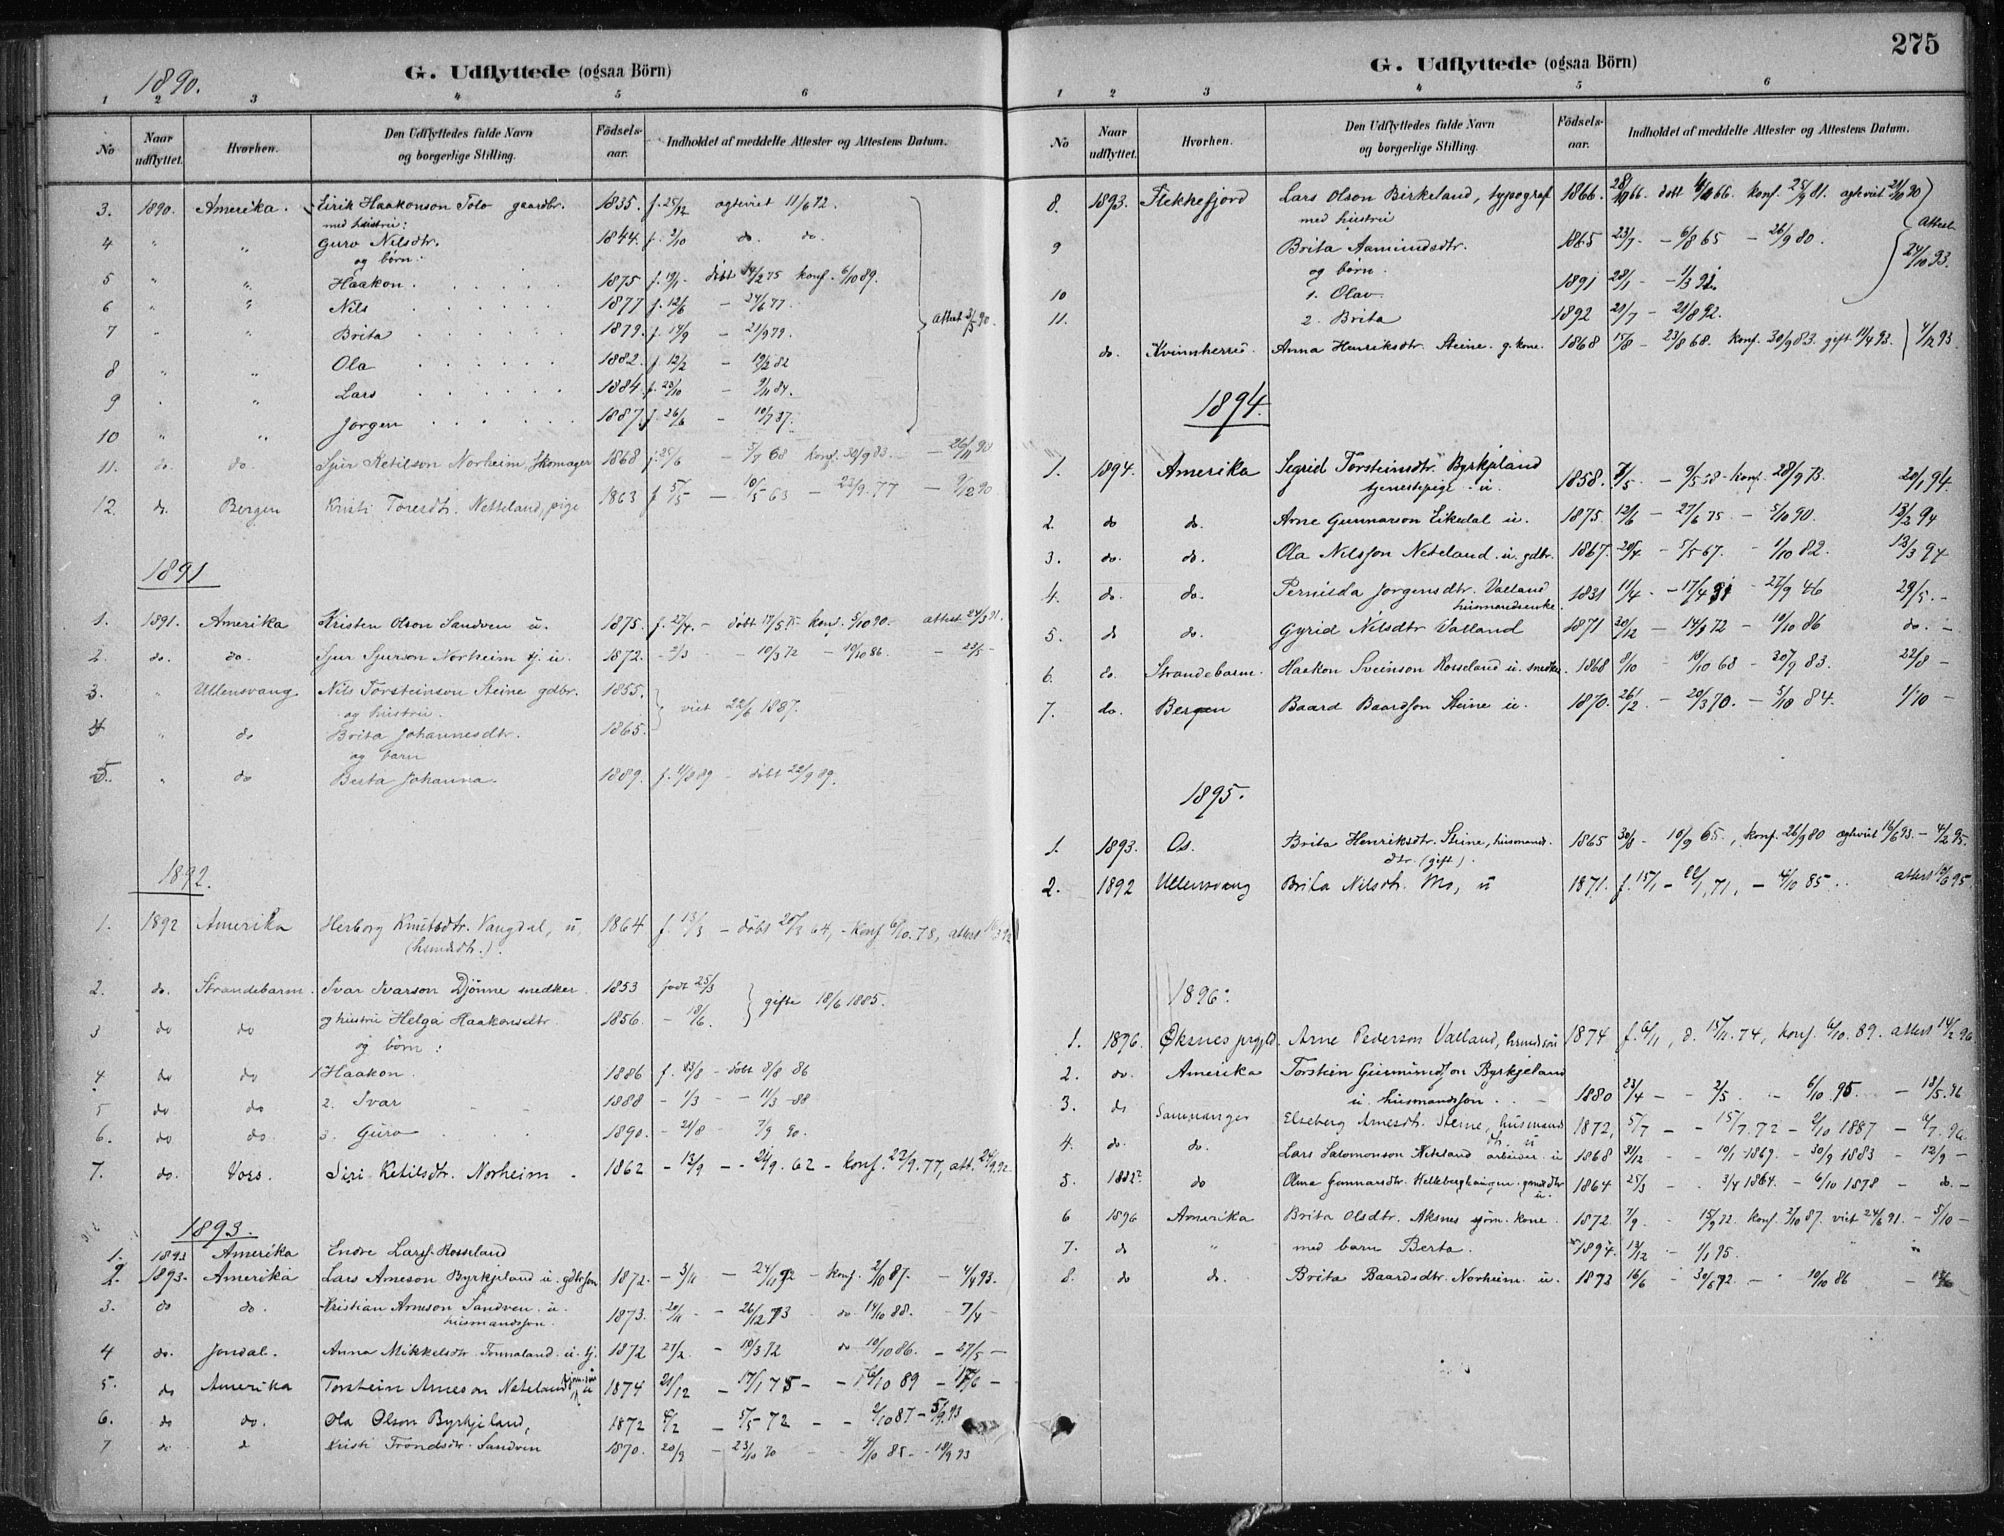 1890.
G. Udflyttede (ogsaa Börn)
1 2 3 4 5 6
No Naar udflyttet. Hvorhen. Den Udflyttedes fulde Navn og borgerlige Stilling. Födsels-aar. Indholdet af meddelte Attester og Attestens Datum.
3. 1890. Amerika. Eirik Haakonson Tolo gaardbr. 1835. f. 25/12 egteviet 11/6 72.
med hustru:
4 " " Guro Nilsdtr. 1844. f. 2/10 do. do.
og børn:
5 " " Haakon. 1875 f. 19/1 døbt 14/2 75 konf. 6/10 89.
6 " " Nils 1877 f. 12/6 – 24/6 77.
7 " " Brita 1879. f. 14/9 – 21/9 79. Attest 3/5 90.
8 " " Ola 1882. f. 12/2 – 19/2 82
9 " " Lars 1884. f. 23/10 – 9/11 84.
10 " " Jørgen 1887. f. 26/6 – 10/7 87.
11. do. do. Sjur Ketilson Norheim, skomager 1868 f. 25/6 – 5/7 68 konf. 30/9 83. – 26/11 90
12. do. Bergen Kristi Toresdtr. Netteland, pige 1863 f. 5/5 – 10/5 63 – 23/9. 77 – 9/12 90.
1891
1. 1891. Amerika Kristen Olson Sandven u. 1875. f. 27/4. – døbt 17/5 75 – konf. 5/10 90. attest 24/3 91.
2. do. do. Sjur Sjurson Norheim tj. u. 1872. – 2/3 – 10/3 72 – 10/10 86. – 23/5 –
3. " Ullensvang Nils Torsteinson Steine gdbr. 1855. viet 22/6 1887.
og hustru.
4 " do Brita Johannesdtr. 1865.
og barn
5. " do Berta Johanna. 1889. f. 11/8 89 – døbt 22/9 89.
1892.
1. 1892 Amerika Herborg Knutsdtr. Vangdal, u, 1864 f. 13/3 – døbt 20/3 64, – konf. 6/10. 78, attest 16/3 92
(husmdtr.).
2. do. Strandebarm. Ivar Ivarson Djønne snedker 1853 født 25/3 gifte 18/6 1885.
3 do do og hustru Helga Haakonsdtr. 1856. – 18/6.
og børn:
4 do do 1 Haakon 1886 f. 23/8 – døbt 8/8 86
5 do do 2. Ivar 1888 – 1/3 – 11/3 – 88
6. do do. 3. Guro 1890. – 21/8 – 7/9 90.
7. do. Voss. Siri Ketilsdtr. Norheim 1862 – 13/9 – – 21/9. 62 – konf. 23/9. 77, att. 24/9. 92
1893.
1. 1893 Amerika Endre Larss. Rosseland
2. 1893. Amerika Lars Arneson Byrkjeland u. gdbrson 1872. – 3/11 – 24/11 72 – konf. 2/10 87. – 4/4 93.
3. do do. Kristian Arneson Sandven u. 1873. 20/11 – 26/12 73 do. 14/10 88. – 7/4 –
husmandsson.
4 do. Jondal. Anna Mikkelsdtr. Tonnaland u. tj. 1872 27/2. – 10/3 72 do 10/10 86. – 27/5 –
5. do Amerika Torstein Arneson Neteland u 1874 21/12 – 17/1 75 – – 6/10 89 – 17/6 –
6. do do. Ola Olson Byrkjeland, 1872 6/2 – 5/5 72 – – 2/10 87 – 5/9. 93
7 do d Kristi Trondsdtr. Sandven 1870. 20/9 – 23/10 70 – 4/10 85 – – 18/9 93
275
G. Udflyttede (ogsaa Börn)
1 2 3 4 5 6
No Naar udflyttet. Hvorhen. Den Udflyttedes fulde Navn og borgerlige Stilling. Födsels-aar. Indholdet af meddelte Attester og Attestens Datum.
8. 1893. Flekkefjord Lars Olson Birkeland, typograf 1866. 28/10 66 døbt 4/11 66. konf. 25/9 81. egteviet 21/10 90
med hustru
9 Brita Aamundsdtr. 1865 23/7 – 6/8 65 – 26/9 80. Attest 24/10 93.
og børn.
10 1. Olav 1891 28/1 – 1/3 91.
11. 2. Brita 1892 21/7 – 21/8 92.
do. Kvinnherred. Anna Henriksdtr. Steine g. kone. 1868 15/8 – 23/8 68. konf. 30/9 83. gift 11/4 93. 4/12 93.
1894.
1. 1894. Amerika Segrid Torsteinsdtr. Byrkjeland 1858. 7/5 – 9/5 58 – konf. 28/9 73. 20/1 94.
tjenestepige u.
2. do do. Arne Gunnarson Eikedal u. 1875. 12/6 – 27/6 75 – 5/10 90. 13/2 94
3. do. do. Ola Nilsson Neteland u. gdbr. 1867. 20/4 – 5/5 67. – 1/10 82. 13/3 94
4. do. do. Pernilla Jørgensdtr. Vatland 1831 11/4 – 17/4 31 – 27/9 46 29/5. –
husmandsenke.
5. do do. Gyrid Nilsdtr Vatland 1871 30/12 – 14/3 72 – 10/10 86 do. –
6. do. Strandebarm. Haakon Sveinson Rosseland u. snedker 1868 8/10 – 18/10 68 – 30/9 83. 22/8 –
7. do. Bergen Baard Baardson Steine u. 1870. 26/2 – 20/3 70. – 5/10 84. 1/10 –
1895.
1. 1893. Os. Brita Henriksdtr. Steine, husmands 1865 30/8 – 10/9 65., konf. 26/9 80 egteviet 16/6 93. – 4/2 95.
dtr. (gift).
2. 1892 Ullensvang Brita Nilsdtr. Mo, u 1871. f. 15/1 – 22/1, 71, – 4/10 85 attest 19/6 95.
1896.
1. 1896. Øksnes prgjld. Arne Pederson Vatland, husmdsøn 1874 f. 6/11, d. 15/11. 74, konf. 6/10. 89. attest 14/2 96
2. do. Amerika Torstein Gunmundson Byrkjeland 1880 23/4 – 2/5 " 6/10 95 – 18/5. 96
u. husmandsson.
3. do Samnanger Elseberg Arnesdtr. Steine, husmands 1872, 5/7 – – 15/7. 72 – 2/10 1887 – 6/7. 96
dtr. u
4. do. do. Lars Salomonson Neteland arbeider u 1868 21/12 – 10/1 1869. – 30/9 1883 – 12/9 –
5. 1882? do Olma Gunnarsdtr. Helleberghaugen gdmdtr 1864 25/3 – 3/4 1864. – 6/10 1878 – do. –
u.
6 1896 Amerika Brita Olsdtr. Aksnes sjøm. kone 1872. 7/9. 15/9 72. konf. 2/10 87. viet 24/6 91. – 5/10 –
7. do " med barn Berta. 1894. 19/12 – 1/1 95.
8. do do. Brita Baardsdtr. Norheim u. 1872 16/6 – 30/6 72. – 10/10 86